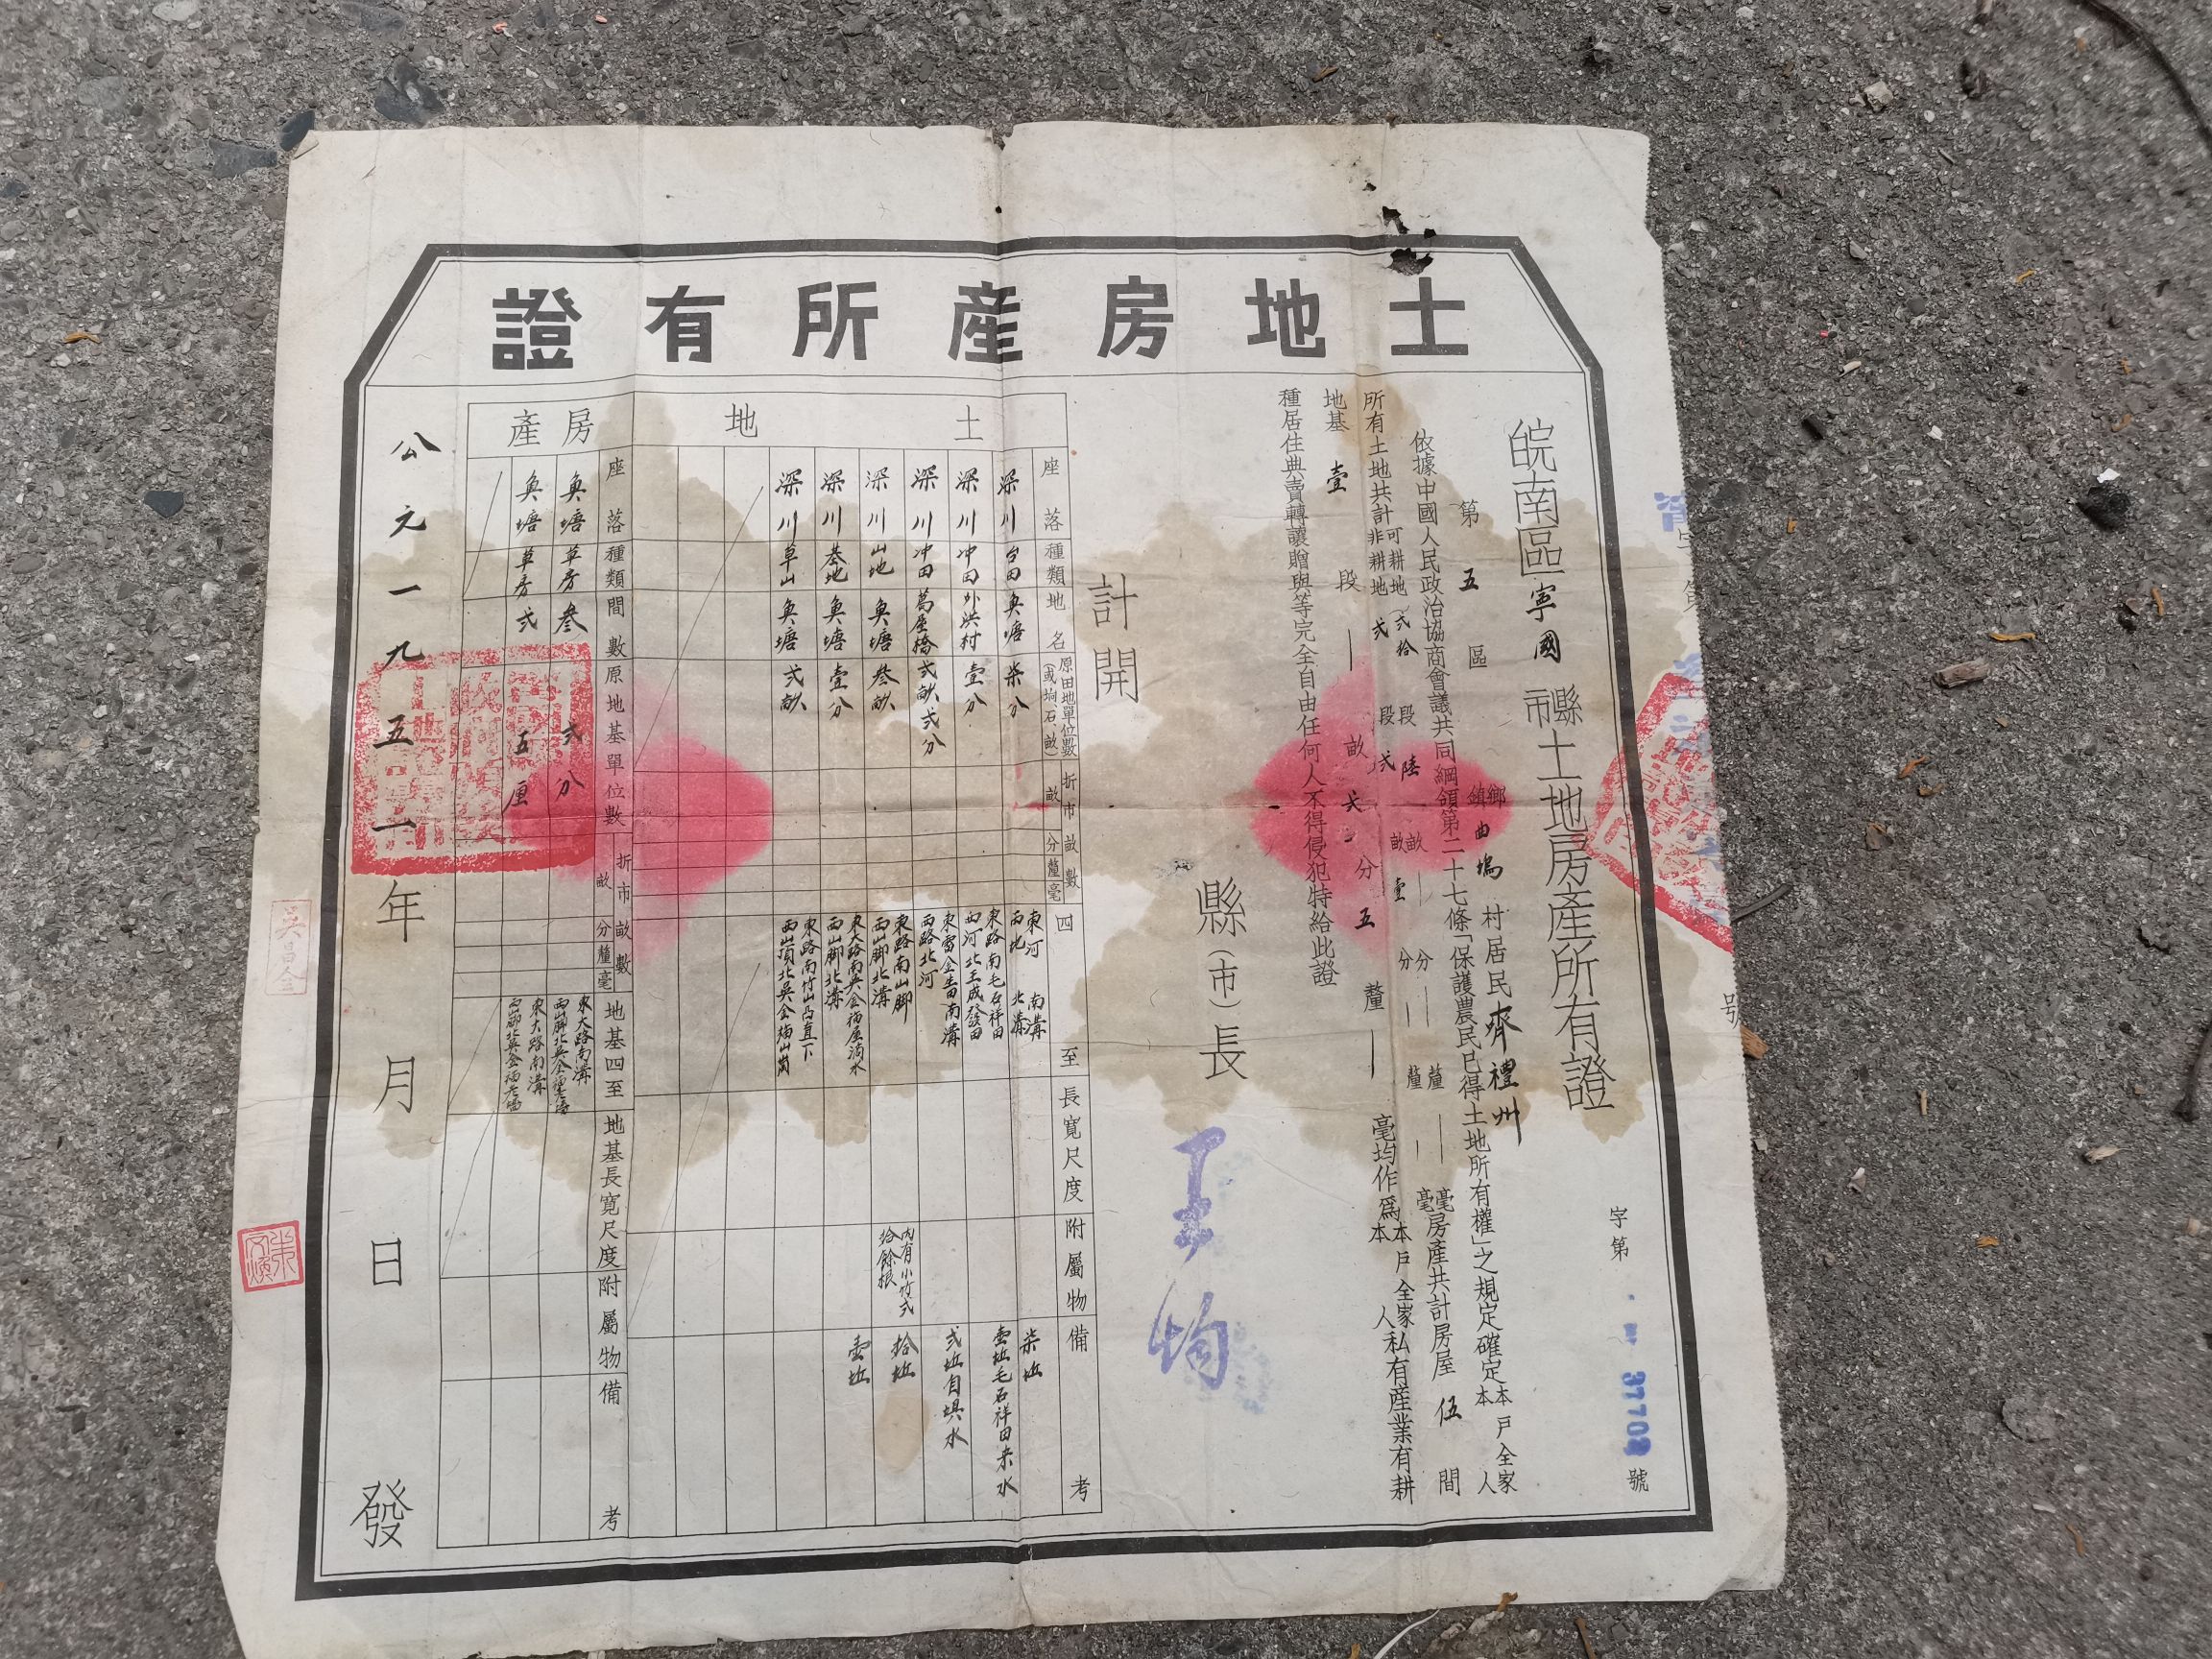 土地房產所有證
皖南區寧國縣市土地房產所有證
字第 37702 號
第五區 鄉鎮 曲塢村居民齊禮州
依據中國人民政治協商會議共同綱領第二十七條「保護農民已得土地所有權」之規定確定本戶全家本人
所有土地共計可耕地弍拾段陸畝分釐毫非耕地弍段弍畝壹分釐毫房產共計房屋伍間
地基壹段畝分五釐毫均作爲本戶全家本人私有產業有耕
種居住典賣轉讓贈與等完全自由任何人不得侵犯特給此證
計開
縣(市)長 王均
土地
座落 種類 地名 原田地單位數(或坵石、畝) 折市畝數 畝分釐毫 四至 長寬尺度 附屬物 備考
深川 台田 魚塘 柒分 東河 南溝 西北 北溝 柒坵
深川 冲田 外洪村 壹分 東路南毛石祥田 西河北王成發田 壹坵毛石祥田来水
深川 冲田 萬屋橋 弍畝弍分 東雷金生田南溝 西路北河 弍坵自埧水
深川 山地 魚塘 叄畝 東路南山脚 西山脚北溝 內有小竹弍拾餘根 拾坵
深川 基地 魚塘 壹分 東大路南吳金福屋滴水 西山脚北溝 壹坵
深川 草山 魚塘 弍畝 東路南竹山凸直下 西山頂北吳金福山崗
房產
座落 種類 間數 原地基單位數 折市畝數 畝分釐毫 地基四至 地基長寬尺度 附屬物 備考
魚塘 草房 叄 弍分 東大路南溝
魚塘 草房 弍 五厘 東大路南溝
公元一九五一年 月 日 發
吳昌金
朱文煥
號